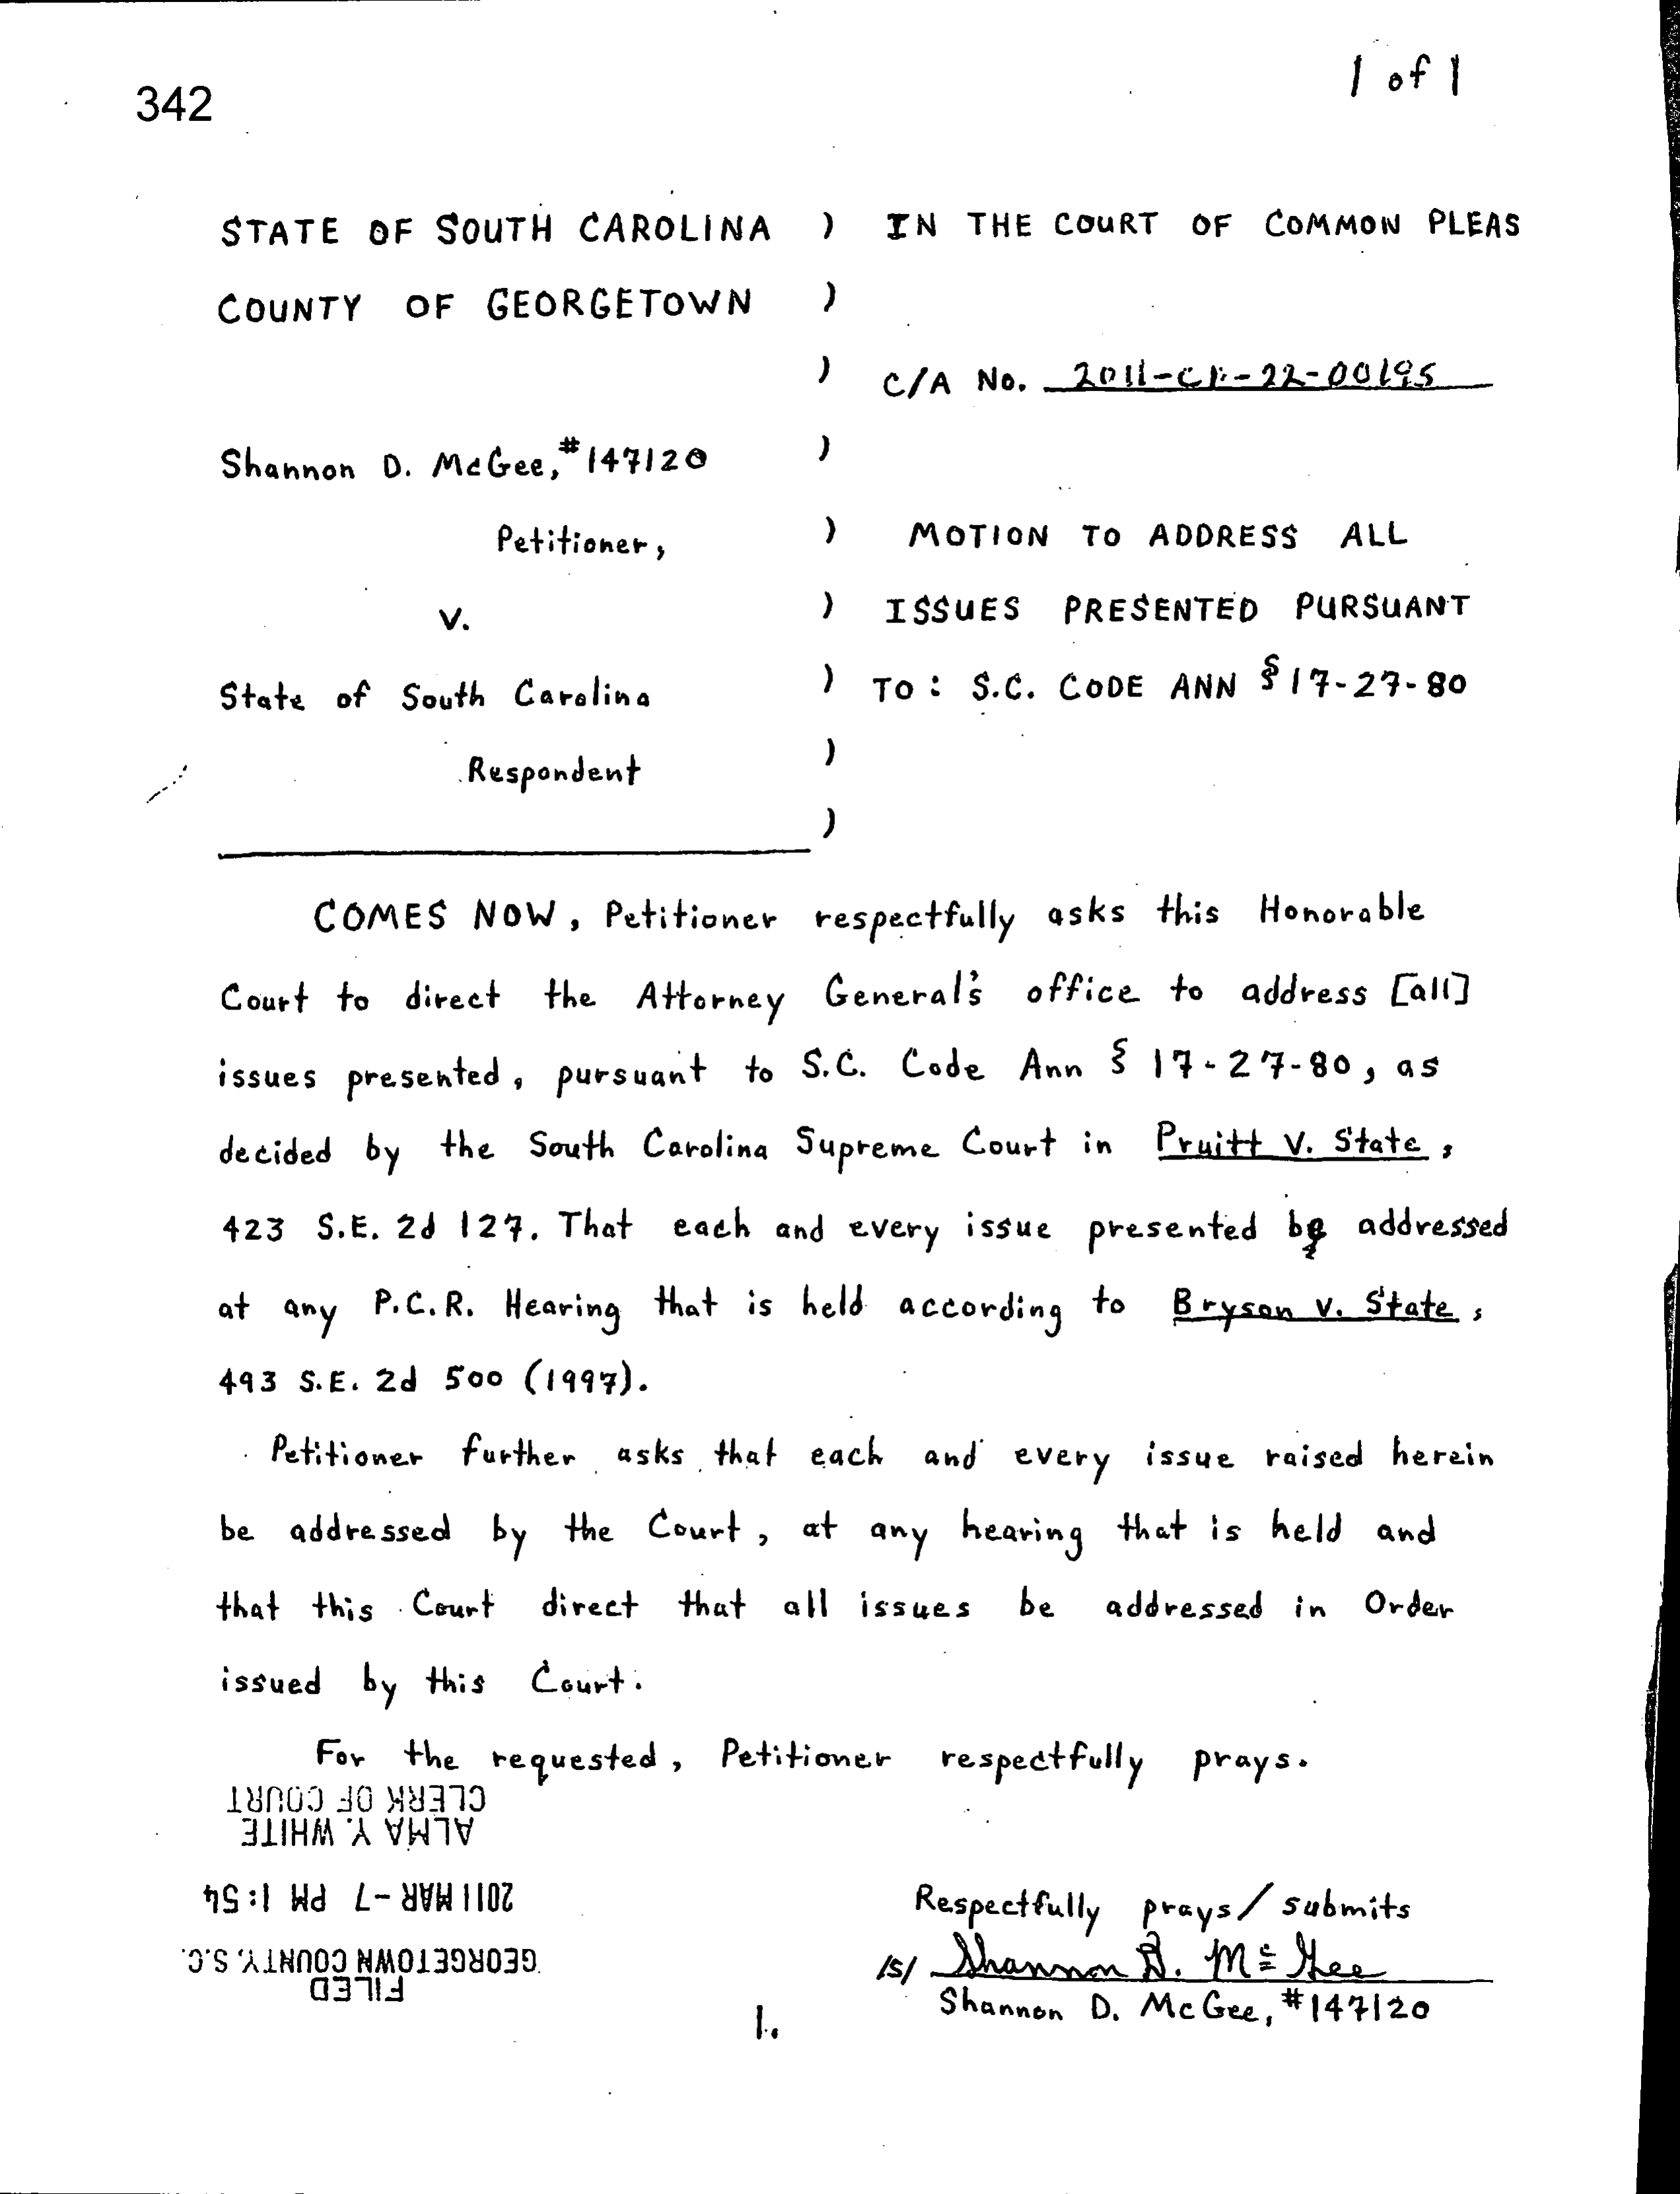 342
1 of 1
STATE OF SOUTH CAROLINA ) IN THE COURT OF COMMON PLEAS
COUNTY OF GEORGETOWN )
) C/A No. 2011-CP-22-00195
Shannon D. McGee, #147120 )
Petitioner, ) MOTION TO ADDRESS ALL
v. ) ISSUES PRESENTED PURSUANT
State of South Carolina ) TO: S.C. CODE ANN § 17-27-80
Respondent )
)
COMES NOW, Petitioner respectfully asks this Honorable
Court to direct the Attorney General's office to address [all]
issues presented, pursuant to S.C. Code Ann § 17-27-80, as
decided by the South Carolina Supreme Court in Pruitt v. State,
423 S.E. 2d 127. That each and every issue presented be addressed
at any P.C.R. Hearing that is held according to Bryson v. State,
493 S.E. 2d 500 (1997).
Petitioner further asks that each and every issue raised herein
be addressed by the Court, at any hearing that is held and
that this Court direct that all issues be addressed in Order
issued by this Court.
For the requested, Petitioner respectfully prays.
Respectfully prays/submits
/s/ Shannon D. McGee
Shannon D. McGee, #147120
FILED
GEORGETOWN COUNTY, S.C.
2011 MAR -7 PM 1:54
ALMA Y. WHITE
CLERK OF COURT
1.